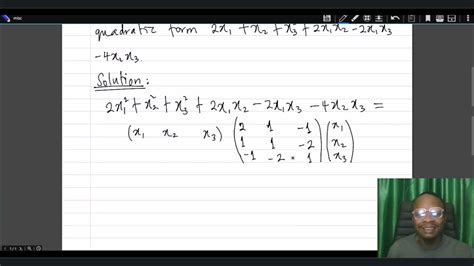 misc
quadratic form 2x₁ + x₂ + x₃² + 2x₁x₂ - 2x₁x₃
-4x₂x₃.
Solution:
2x₁² + x₂² + x₃² + 2x₁x₂ - 2x₁x₃ - 4x₂x₃ =
(x₁ x₂ x₃) (2 1 -1) (x₁)
(1 1 -2) (x₂)
(-1 -2 1) (x₃)